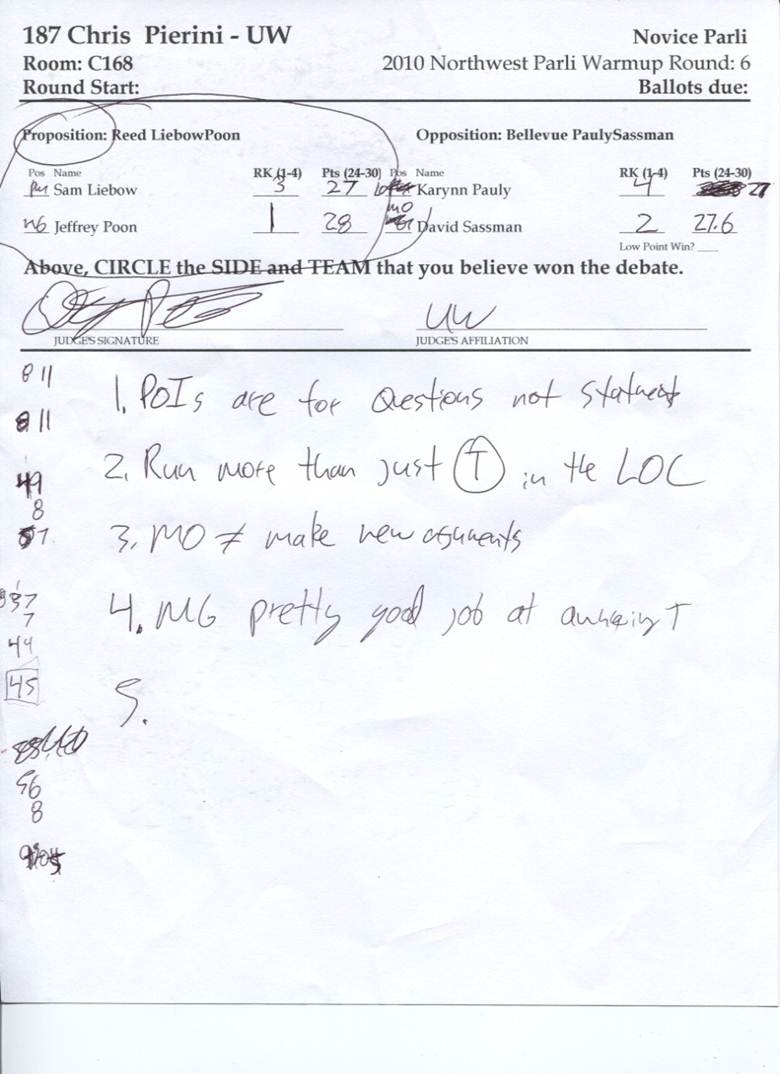 187 Chris Pierini - UW Novice Parli
Room: C168 2010 Northwest Parli Warmup Round: 6
Round Start: Ballots due:
Proposition: Reed LiebowPoon Opposition: Bellevue PaulySassman
Pos Name RK (1-4) Pts (24-30) Pos Name RK (1-4) Pts (24-30)
PM Sam Liebow 3 27 Karynn Pauly 4 27
MG Jeffrey Poon 1 28 MO David Sassman 2 27.6
Low Point Win? ___
Above, CIRCLE the SIDE and TEAM that you believe won the debate.
UW
JUDGE'S SIGNATURE JUDGE'S AFFILIATION
8 11
1. POIs are for Questions not statements
8 11
2. Run more than just T in the LOC
49
8
57
3. MO ≠ make new arguments
37
7
4. MG pretty good job at answering T
44
45
5.
56
8